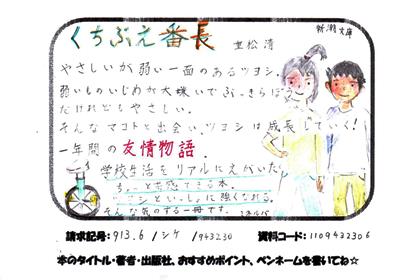 くちぶえ番長 重松清 新潮文庫
やさしいが弱い一面のあるツヨシ。
弱いもののいじめが大嫌いでぶっきらぼう
だけれどもやさしい。
そんなマコトと出会い、ツヨシは成長していく!
一年間の友情物語.
学校生活をリアルにえがいた
ちょっと共感できる本。
ツヨシといっしょに強くなれる。
そんな気のする一冊です。 ミネルバ
請求記号: 913.6 / シケ / 943230 資料コード: 1109432306
本のタイトル・著者・出版社、おすすめポイント、ペンネームを書いてね☆